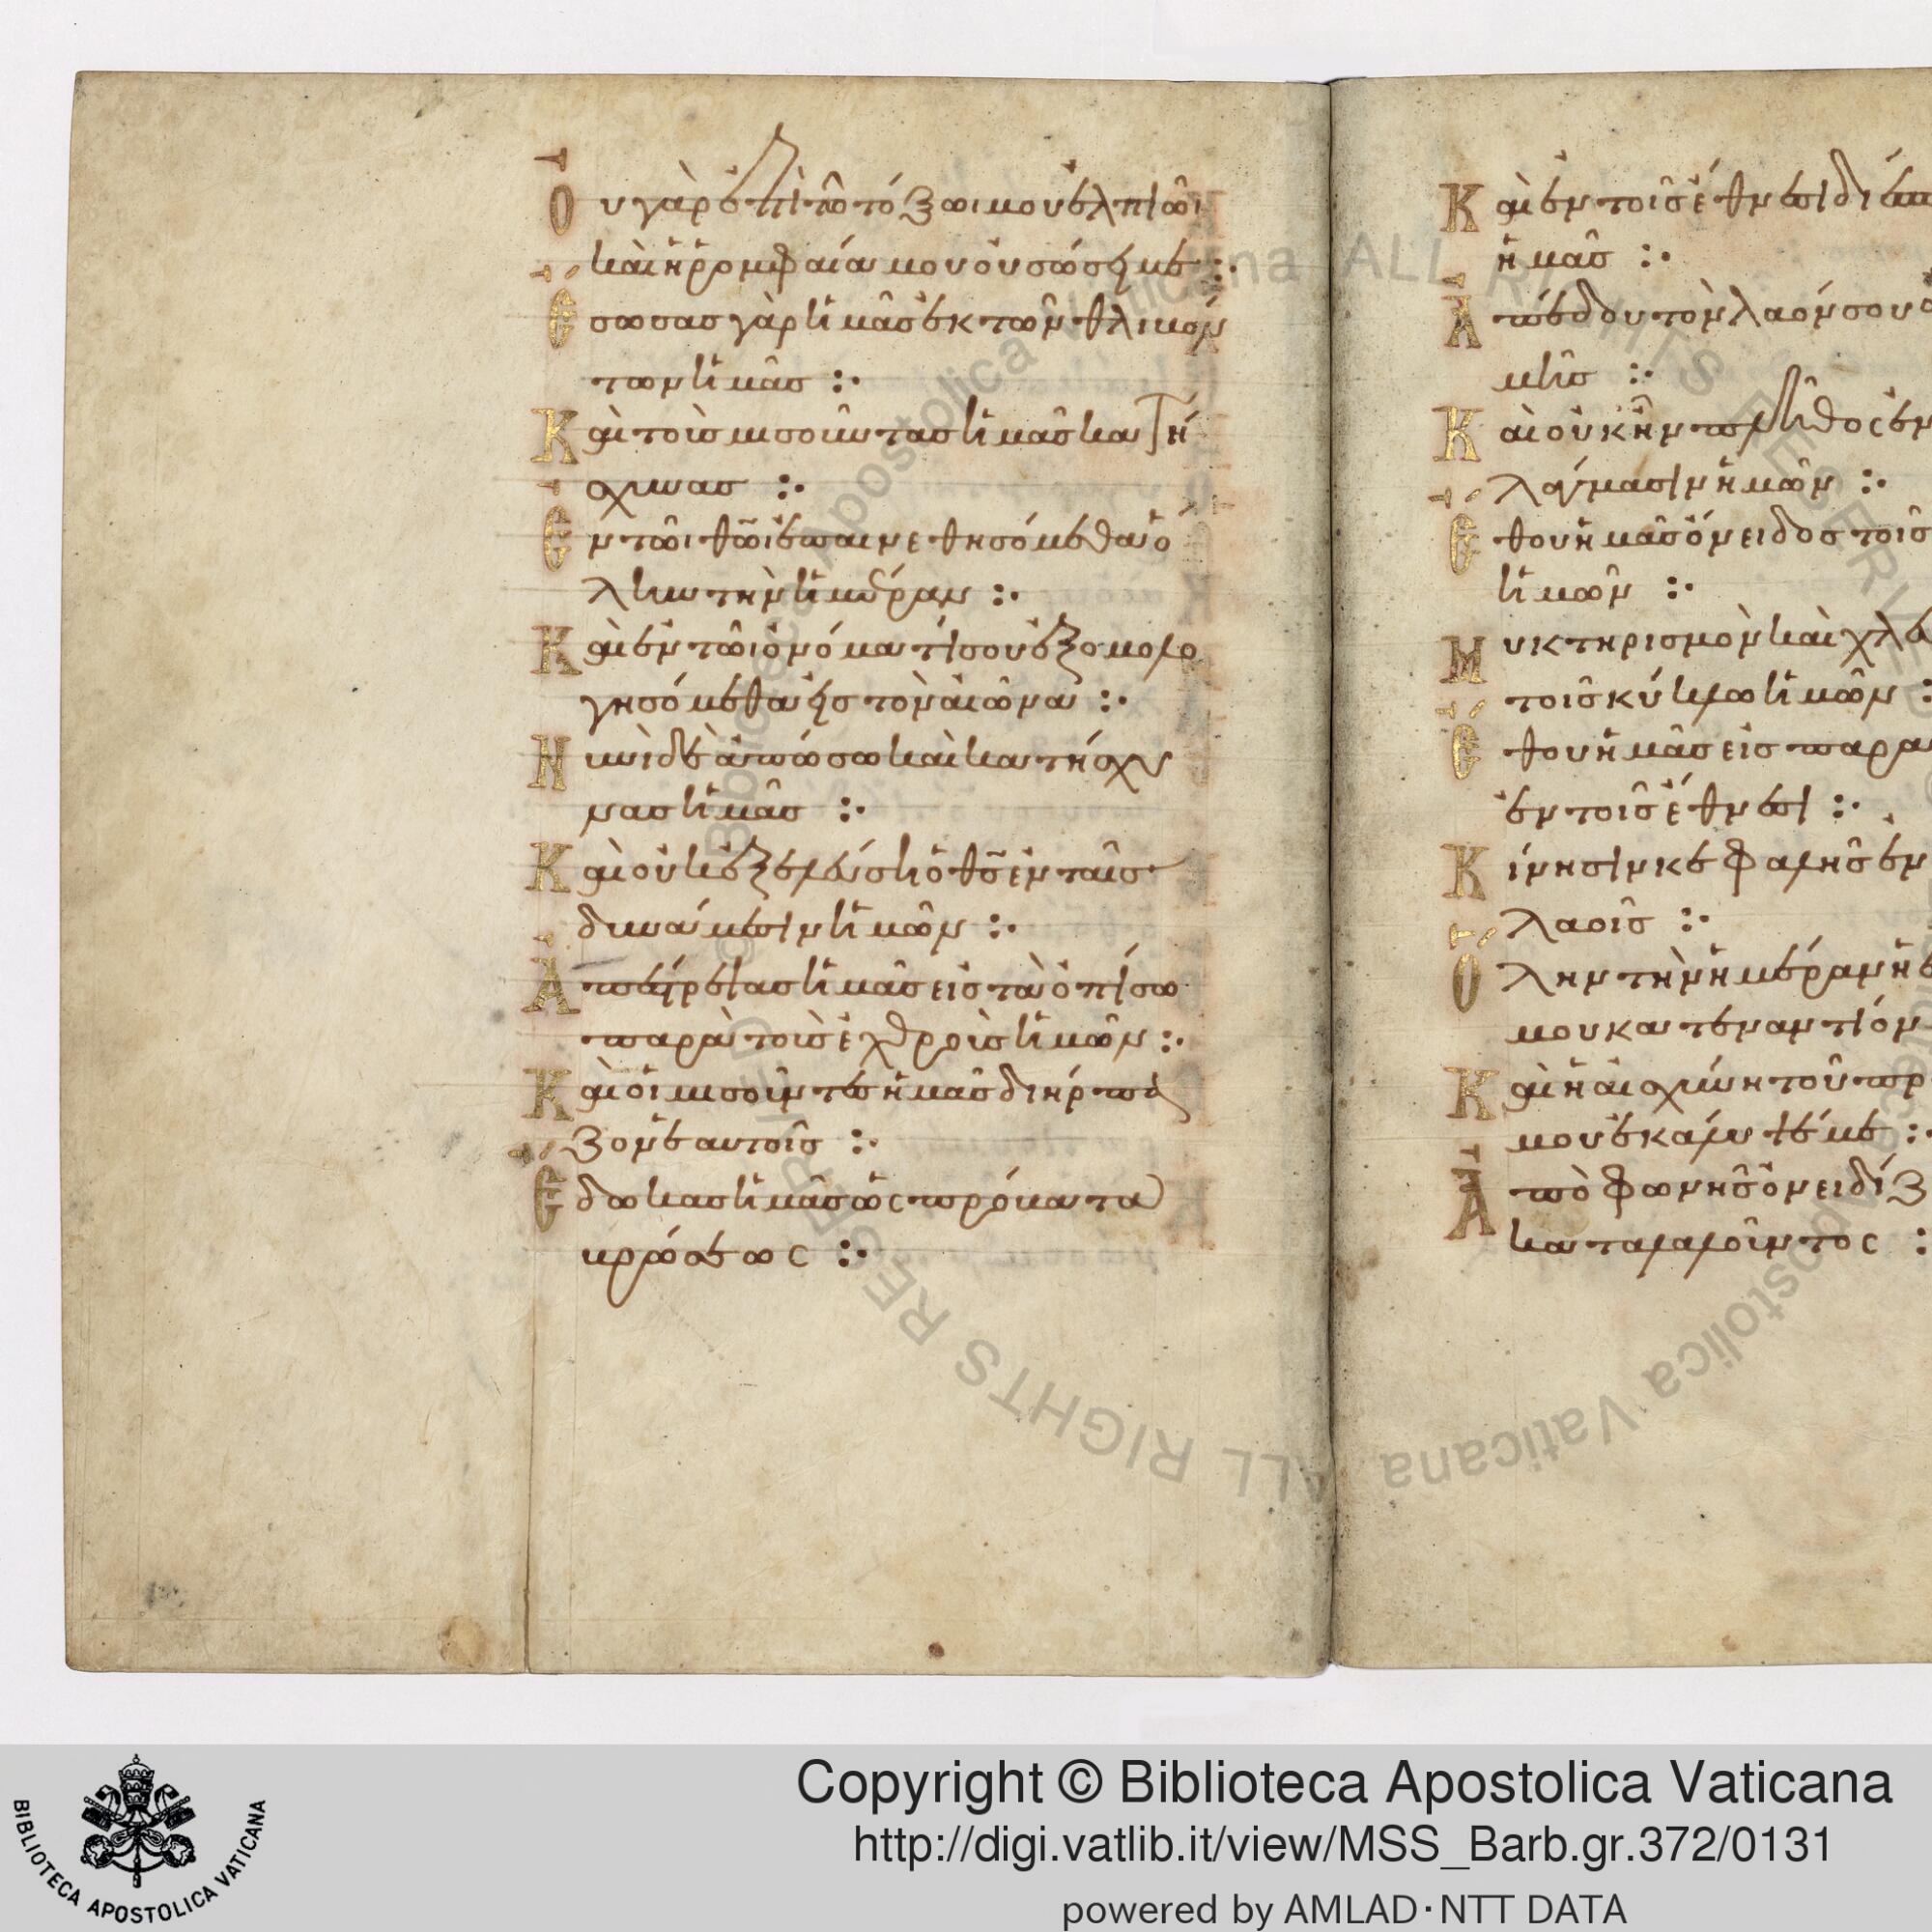 Ου γὰρ ἐπὶ τῶ τόξωι μου ἐλπιῶι
καὶ ἡ ῥομφαία μου οὐ σώσει με :·
Εσωσας γὰρ ἡμᾶς ἐκ τῶν θλιβόν
των ἡμᾶς :·
Καὶ τοὺς μισοῦντας ἡμᾶς κατή
σχυνας :·
Εν τῶι θῶι ἐπαινεθησόμεθα ὅ
λην τὴν ἡμέραν :·
Καὶ ἐν τῶι ὀνόματί σου ἐξομολο
γησόμεθα εἰς τὸν αἰῶνα :·
Νυνὶ δὲ ἀπώσω καὶ κατήσχυ
νας ἡμᾶς :·
Καὶ οὐκ ἐξελεύσῃ ὁ θς ἐν ταῖς
δυνάμεσιν ἡμῶν :·
Απέστρεψας ἡμᾶς εἰς τὰ ὀπίσω
παρὰ τοῖς ἐχθροῖς ἡμῶν :·
Καὶ οἱ μισοῦντες ἡμᾶς διήρπα
ζον ἑαυτοῖς :·
Εδωκας ἡμᾶς ὡς πρόβατα
βρώσεως :·
Καὶ ἐν τοῖς ἔθνεσι διέσπ
ἡμᾶς :·
Απέδου τὸν λαόν σου
μῆς :·
Καὶ οὐκ ἦν πλῆθος ἐν
λάγμασιν ἡμῶν :·
Εθου ἡμᾶς ὄνειδος τοῖς
ἡμῶν :·
Μυκτηρισμὸν καὶ χλε
τοῖς κύκλω ἡμῶν :
Εθου ἡμᾶς εἰς παρα
ἐν τοῖς ἔθνεσι :·
Κίνησιν κεφαλῆς ἐν
λαοῖς :·
Ολην τὴν ἡμέραν ἡ ἐ
μου κατεναντίον
Καὶ ἡ αἰσχύνη τοῦ πρ
μου ἐκάλυψέ με :·
Απὸ φωνῆς ὀνειδίζ
καταλαλοῦντος :
Copyright © Biblioteca Apostolica Vaticana
http://digi.vatlib.it/view/MSS_Barb.gr.372/0131
powered by AMLAD·NTT DATA
BIBLIOTECA APOSTOLICA VATICANA